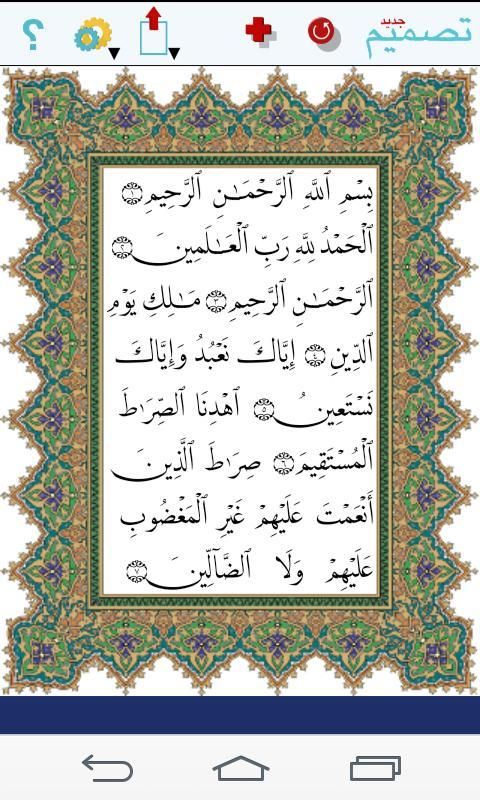 تصميم جديد
؟
بِسْمِ ٱللَّهِ ٱلرَّحْمَـٰنِ ٱلرَّحِيمِ ١
ٱلْحَمْدُ لِلَّهِ رَبِّ ٱلْعَـٰلَمِينَ ٢
ٱلرَّحْمَـٰنِ ٱلرَّحِيمِ ٣ مَـٰلِكِ يَوْمِ
ٱلدِّينِ ٤ إِيَّاكَ نَعْبُدُ وَإِيَّاكَ
نَسْتَعِينُ ٥ ٱهْدِنَا ٱلصِّرَٰطَ
ٱلْمُسْتَقِيمَ ٦ صِرَٰطَ ٱلَّذِينَ
أَنْعَمْتَ عَلَيْهِمْ غَيْرِ ٱلْمَغْضُوبِ
عَلَيْهِمْ وَلَا ٱلضَّآلِّينَ ٧